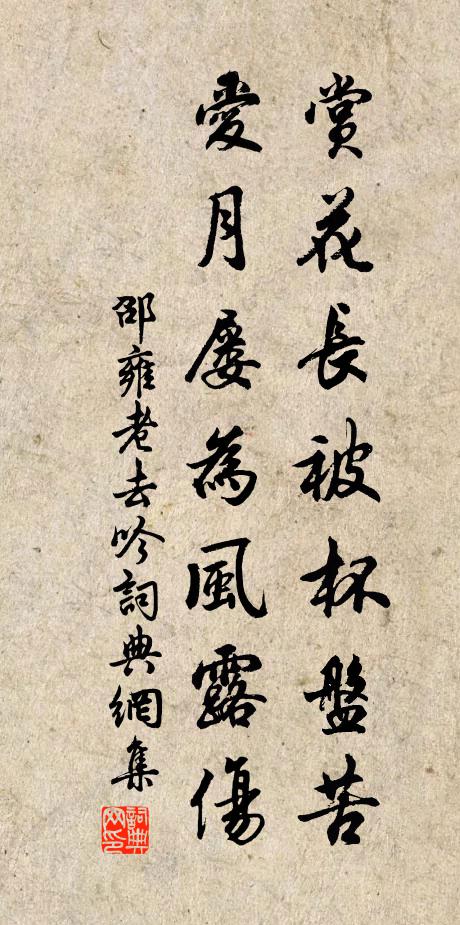 賞花長被杯盤苦
愛月屢為風露傷
邵雍老去吟詞典網集
詞典網印